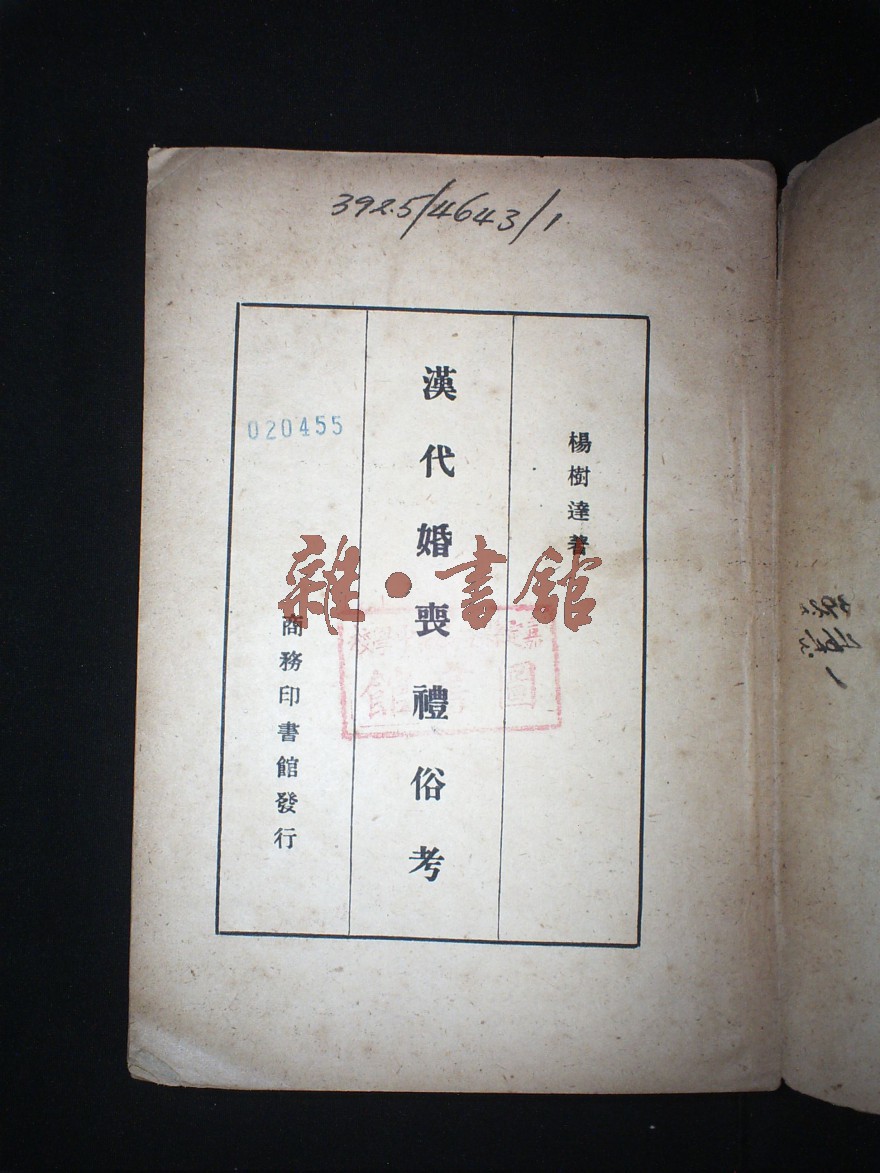 392.5/4643/1
楊樹達著
漢代婚喪禮俗考
020455
商務印書館發行
雜·書館
圖書館